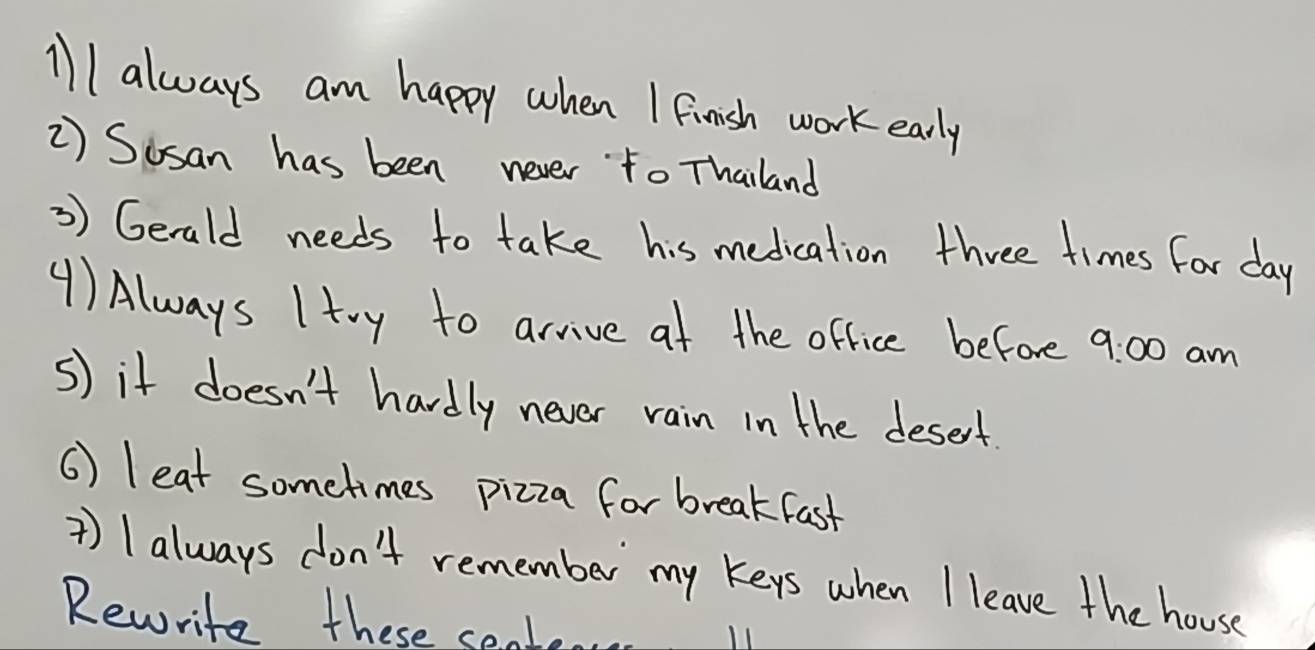 1) I always am happy when I finish work early
2) Susan has been never to Thailand
3) Gerald needs to take his medication three times for day
4) Always I try to arrive at the office before 9:00 am
5) it doesn't hardly never rain in the desert.
6) I eat sometimes pizza for breakfast
7) I always don't remember my keys when I leave the house
Rewrite these